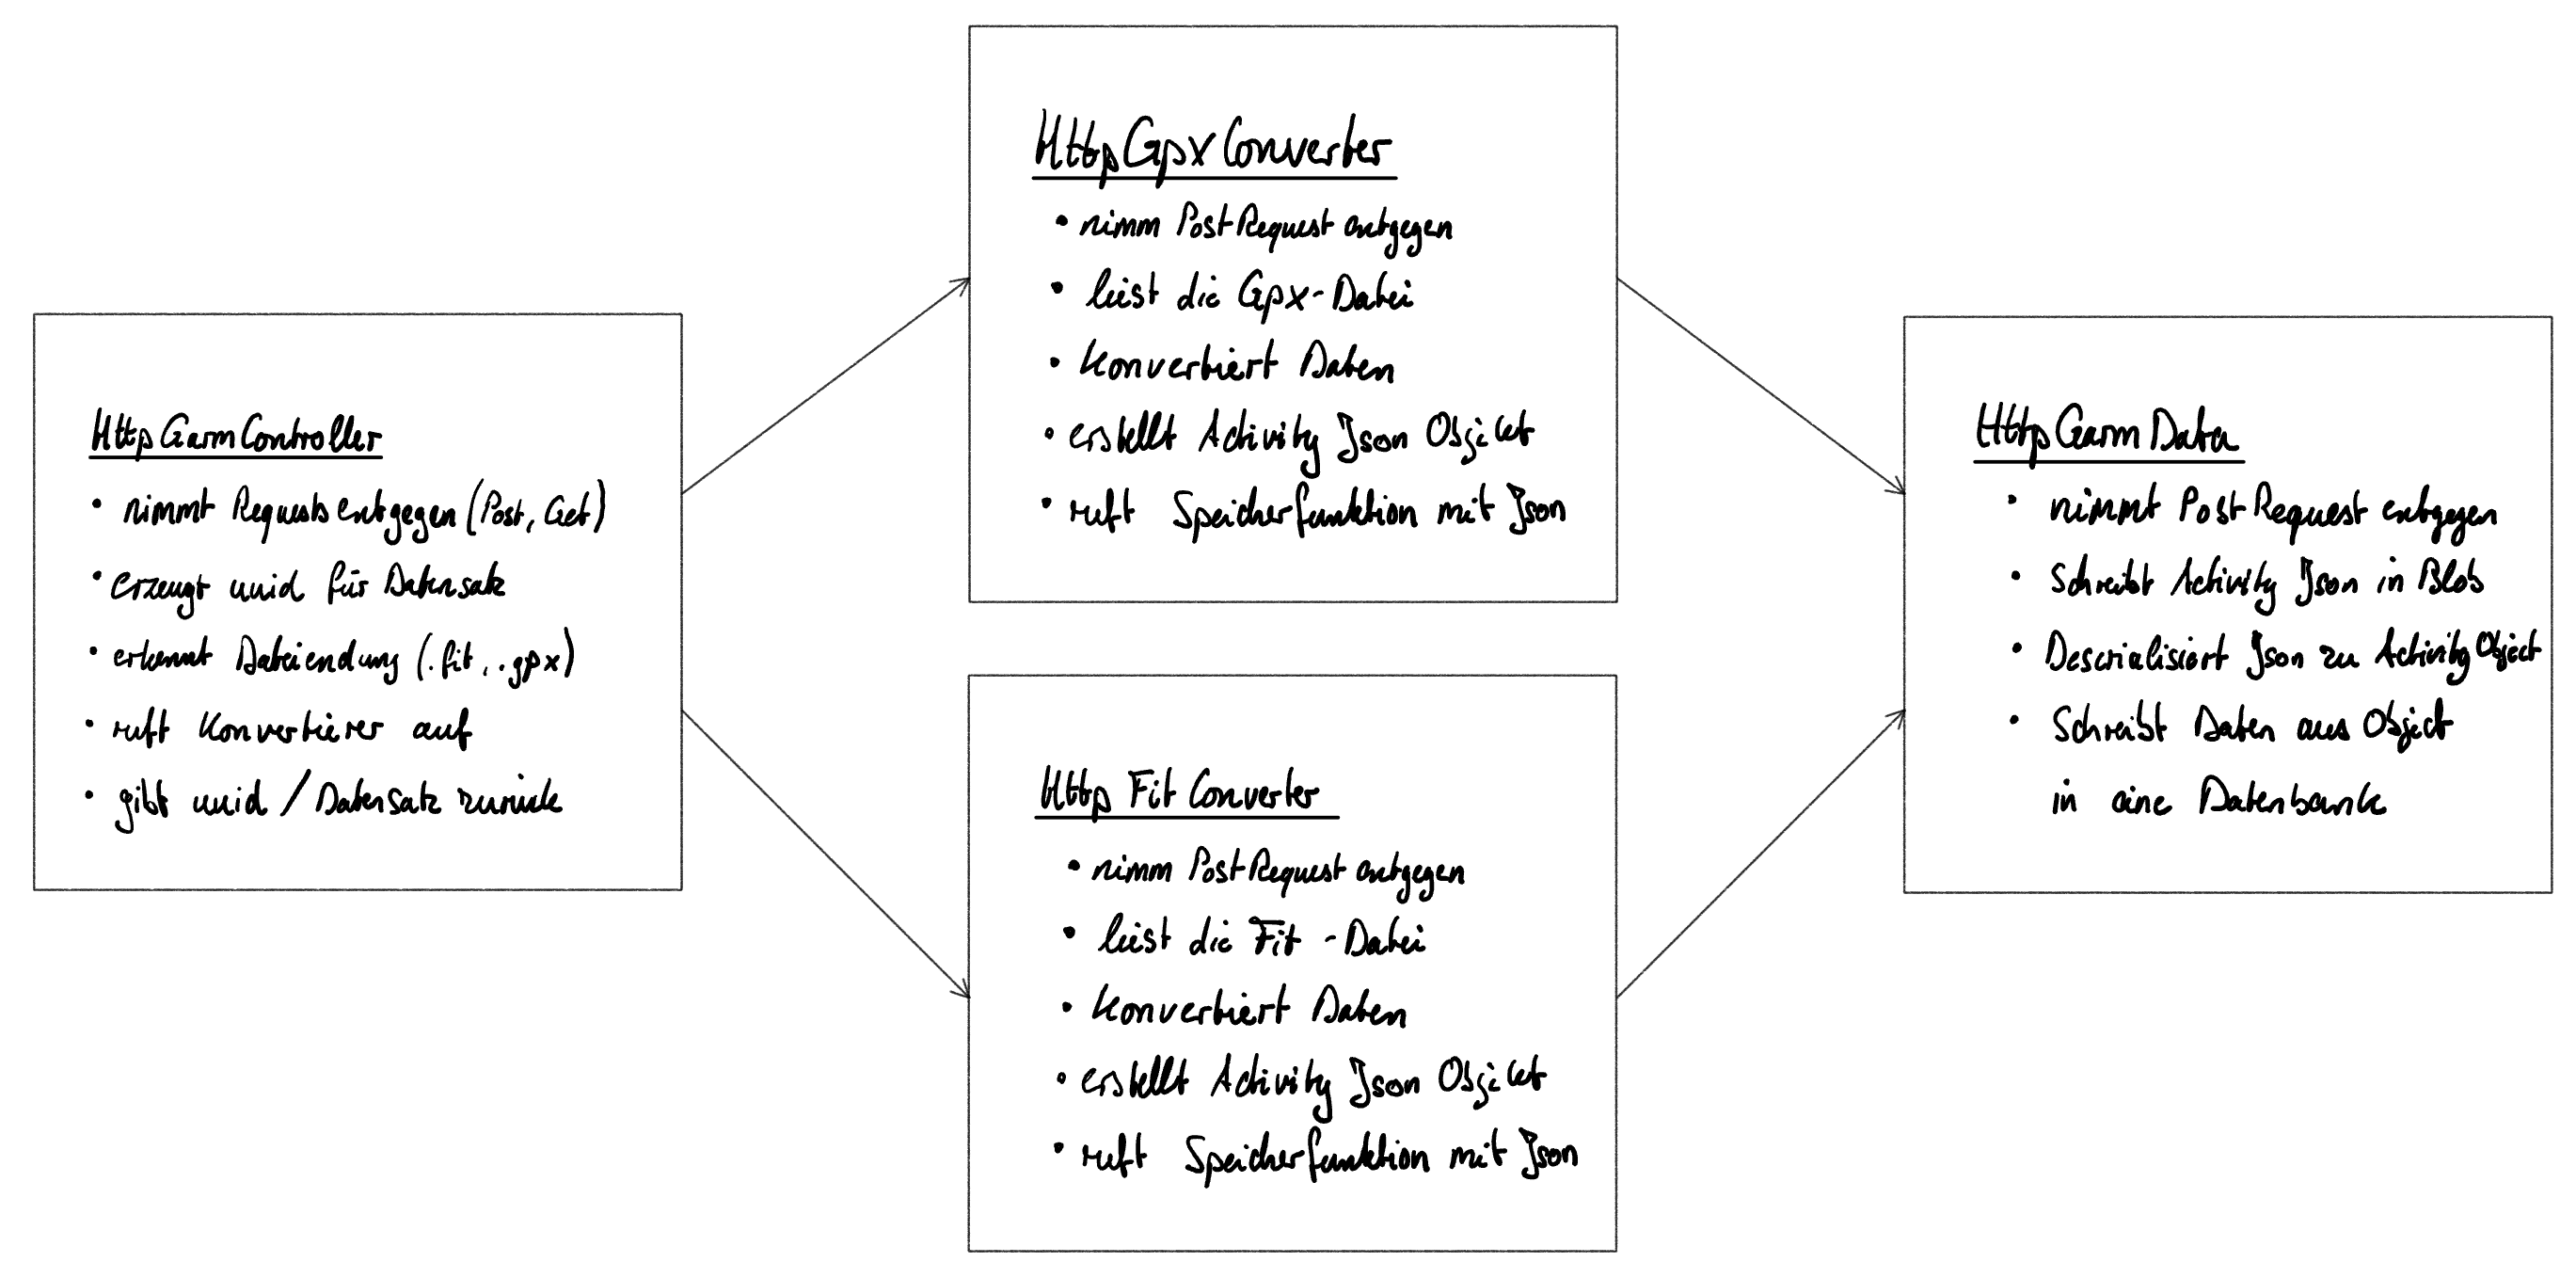 HttpGarmController
• nimmt Requests entgegen (Post, Get)
• erzeugt uuid für Datensatz
• erkennt Dateiendung (.fit, .gpx)
• ruft Konvertierer auf
• gibt uuid / Datensatz zurück
HttpGpxConverter
• nimm PostRequest entgegen
• liest die Gpx-Datei
• Konvertiert Daten
• erstellt Activity Json Objekt
• ruft Speicherfunktion mit Json
Http Fit Converter
• nimm PostRequest entgegen
• liest die Fit -Datei
• Konvertiert Daten
• erstellt Activity Json Objekt
• ruft Speicherfunktion mit Json
HttpGarmData
• nimmt PostRequest entgegen
• Schreibt Activity Json in Blob
• Deserialisiert Json zu ActivityObject
• Schreibt Daten aus Object
in eine Datenbank